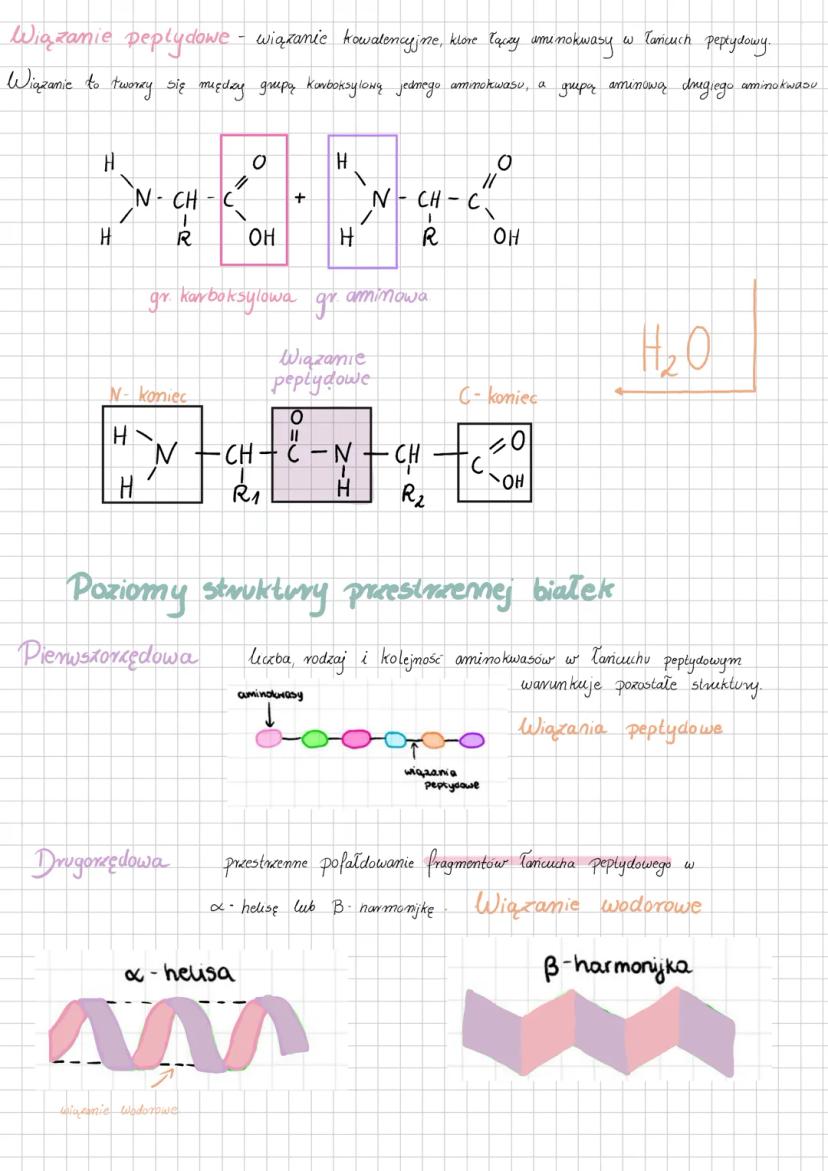 Wiązanie peptydowe - wiązanie kowalencyjne, które łączy aminokwasy w łańcuch peptydowy.
Wiązanie to tworzy się między grupą karboksylową jednego aminokwasu, a grupą aminową drugiego aminokwasu
H O H O
N - CH - C + N - CH - C
H R OH H R OH
gr. karboksylowa gr. aminowa
H₂O
Wiązanie
peptydowe
N - koniec C - koniec
O
H N CH C N CH C O
H R1 H R2 OH
Poziomy struktury przestrzennej białek
Pierwszorzędowa liczba, rodzaj i kolejność aminokwasów w łańcuchu peptydowym
warunkuje pozostałe struktury.
aminokwasy
Wiązania peptydowe
wiązania
peptydowe
Drugorzędowa przestrzenne pofałdowanie fragmentów łańcucha peptydowego w
α - helisę lub β - harmonijkę. Wiązanie wodorowe
α - helisa β - harmonijka
wiązanie wodorowe